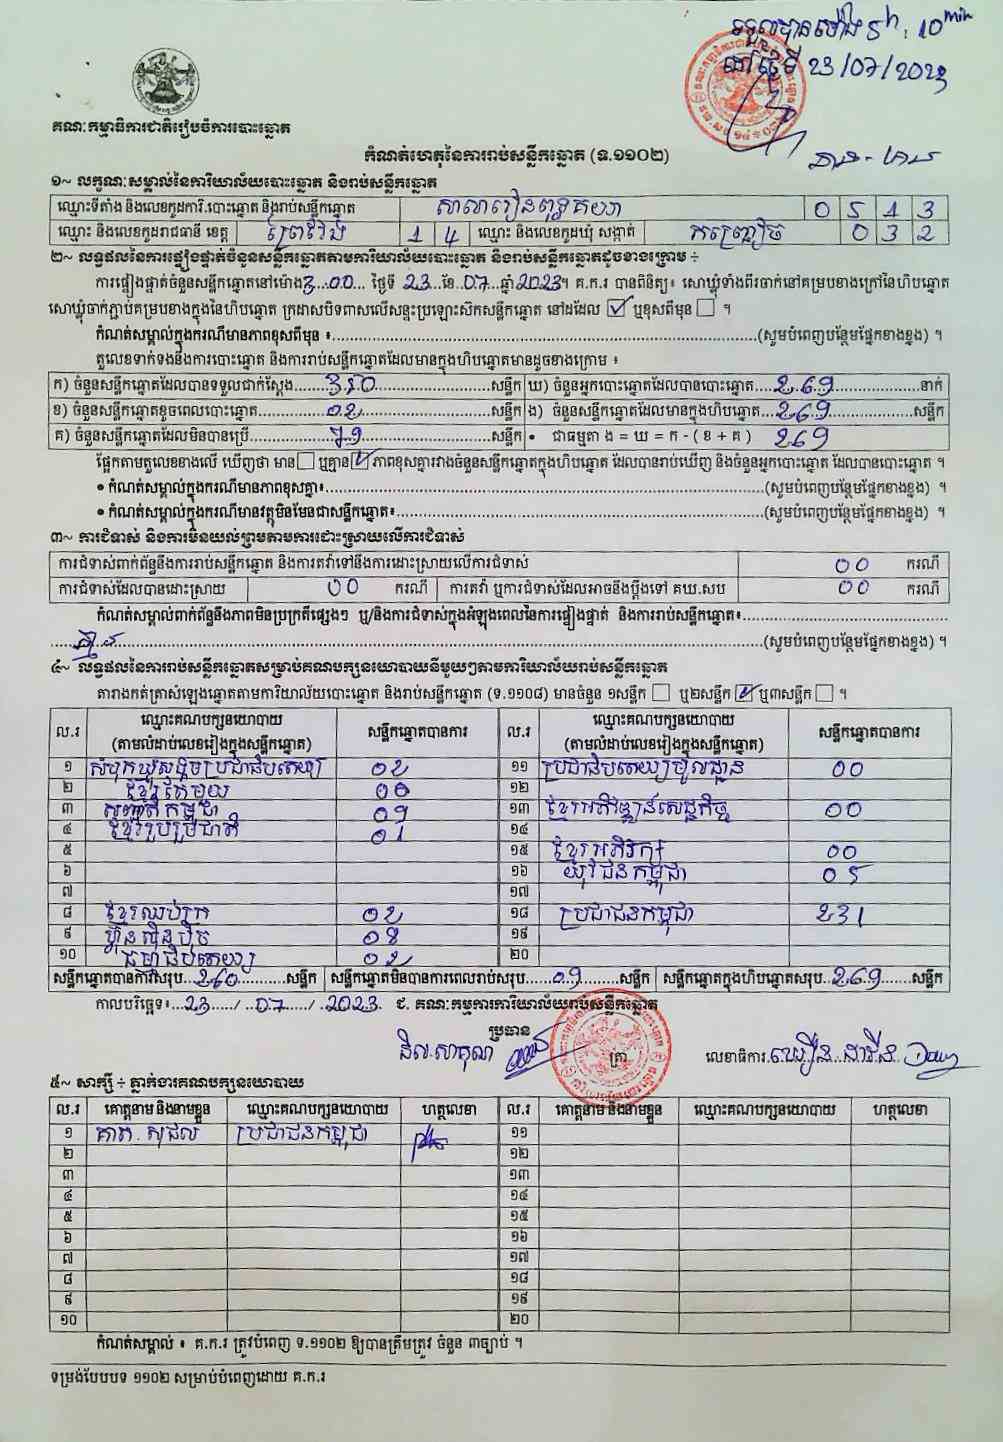 ទទួលបានម៉ោង 5h : 10min
នៅថ្ងៃទី 23/07/2023
គណៈកម្មាធិការជាតិរៀបចំការបោះឆ្នោត
កំណត់ហេតុនៃការរាប់សន្លឹកឆ្នោត (ទ.១១០២)
១~ លក្ខណៈសម្គាល់នៃការិយាល័យបោះឆ្នោត និងរាប់សន្លឹកឆ្នោត
ឈ្មោះទីតាំង និងលេខកូដការិ.បោះឆ្នោត និងរាប់សន្លឹកឆ្នោត សាលារៀនពុទ្ធគយា 0 5 1 3
ឈ្មោះ និងលេខកូដរាជធានី ខេត្ត ព្រៃវែង 1 4 ឈ្មោះ និងលេខកូដឃុំ សង្កាត់ កញ្ជ្រៀច 0 3 2
២~ លទ្ធផលនៃការផ្ទៀងផ្ទាត់ចំនួនសន្លឹកឆ្នោតតាមការិយាល័យបោះឆ្នោត និងរាប់សន្លឹកឆ្នោតដូចខាងក្រោម ÷
ការផ្ទៀងផ្ទាត់ចំនួនសន្លឹកឆ្នោតនៅម៉ោង 3:00 ថ្ងៃទី 23 ខែ 07 ឆ្នាំ 2023។ គ.ក.រ បានពិនិត្យ៖ សោឃ្លុំទាំងពីរចាក់នៅគម្របខាងក្រៅនៃហិបឆ្នោត
សោឃ្លុំចាក់ភ្ជាប់គម្របខាងក្នុងនៃហិបឆ្នោត ក្រដាសបិទពាសលើសន្ទះប្រឡោះស៊កសន្លឹកឆ្នោត នៅដដែល ☑ ឬខុសពីមុន ☐ ។
កំណត់សម្គាល់ក្នុងករណីមានភាពខុសពីមុន ៖ (សូមបំពេញបន្ថែមផ្នែកខាងខ្នង) ។
តួលេខទាក់ទងនឹងការបោះឆ្នោត និងការរាប់សន្លឹកឆ្នោតដែលមានក្នុងហិបឆ្នោតមានដូចខាងក្រោម ៖
ក) ចំនួនសន្លឹកឆ្នោតដែលបានទទួលជាក់ស្តែង 350 សន្លឹក ឃ) ចំនួនអ្នកបោះឆ្នោតដែលបានបោះឆ្នោត 269 នាក់
ខ) ចំនួនសន្លឹកឆ្នោតខូចពេលបោះឆ្នោត 02 សន្លឹក ង) ចំនួនសន្លឹកឆ្នោតដែលមានក្នុងហិបឆ្នោត 269 សន្លឹក
គ) ចំនួនសន្លឹកឆ្នោតដែលមិនបានប្រើ 79 សន្លឹក • ជាធម្មតា ង = ឃ = ក - ( ខ + គ ) 269
ផ្អែកតាមតួលេខខាងលើ ឃើញថា មាន ☐ ឬគ្មាន ☑ ភាពខុសគ្នារវាងចំនួនសន្លឹកឆ្នោតក្នុងហិបឆ្នោត ដែលបានរាប់ឃើញ និងចំនួនអ្នកបោះឆ្នោត ដែលបានបោះឆ្នោត ។
• កំណត់សម្គាល់ក្នុងករណីមានភាពខុសគ្នា៖ (សូមបំពេញបន្ថែមផ្នែកខាងខ្នង) ។
• កំណត់សម្គាល់ក្នុងករណីមានវត្ថុមិនមែនជាសន្លឹកឆ្នោត៖ (សូមបំពេញបន្ថែមផ្នែកខាងខ្នង) ។
៣~ ការជំទាស់ និងការមិនយល់ព្រមតាមការដោះស្រាយលើការជំទាស់
ការជំទាស់ពាក់ព័ន្ធនឹងការរាប់សន្លឹកឆ្នោត និងការតវ៉ាទៅនឹងការដោះស្រាយលើការជំទាស់ 00 ករណី
ការជំទាស់ដែលបានដោះស្រាយ 00 ករណី ការតវ៉ា ឬការជំទាស់ដែលអាចនឹងប្តឹងទៅ គឃ.សប 00 ករណី
កំណត់សម្គាល់ពាក់ព័ន្ធនឹងភាពមិនប្រក្រតីផ្សេងៗ ឬ/និងការជំទាស់ក្នុងអំឡុងពេលនៃការផ្ទៀងផ្ទាត់ និងការរាប់សន្លឹកឆ្នោត៖
គ្មាន (សូមបំពេញបន្ថែមផ្នែកខាងខ្នង) ។
៤~ លទ្ធផលនៃការរាប់សន្លឹកឆ្នោតសម្រាប់គណបក្សនយោបាយនីមួយៗតាមការិយាល័យរាប់សន្លឹកឆ្នោត
តារាងកត់ត្រាសំឡេងឆ្នោតតាមការិយាល័យបោះឆ្នោត និងរាប់សន្លឹកឆ្នោត (ទ.១១០៨) មានចំនួន ១សន្លឹក ☐ ឬ២សន្លឹក ☑ ឬ៣សន្លឹក ☐ ។
ល.រ ឈ្មោះគណបក្សនយោបាយ (តាមលំដាប់លេខរៀងក្នុងសន្លឹកឆ្នោត) សន្លឹកឆ្នោតបានការ ល.រ ឈ្មោះគណបក្សនយោបាយ (តាមលំដាប់លេខរៀងក្នុងសន្លឹកឆ្នោត) សន្លឹកឆ្នោតបានការ
១ សំបុកឃ្មុំសង្គមប្រជាធិបតេយ្យ 02 ១១ ប្រជាធិបតេយ្យមូលដ្ឋាន 00
២ ខ្មែរតែមួយ 00 ១២
៣ សញ្ជាតិកម្ពុជា 09 ១៣ ខ្មែរអភិវឌ្ឍន៍សេដ្ឋកិច្ច 00
៤ ខ្មែររួបរួមជាតិ 01 ១៤
៥ ១៥ ខ្មែរអភិរក្ស 00
៦ ១៦ យុវជនកម្ពុជា 05
៧ ១៧
៨ ខ្មែរឈប់ក្រ 02 ១៨ ប្រជាជនកម្ពុជា 231
៩ ហ្វ៊ុនស៊ិនប៉ិច 08 ១៩
១០ ធម្មាធិបតេយ្យ 02 ២០
សន្លឹកឆ្នោតបានការសរុប 260 សន្លឹក សន្លឹកឆ្នោតមិនបានការពេលរាប់សរុប 09 សន្លឹក សន្លឹកឆ្នោតក្នុងហិបឆ្នោតសរុប 269 សន្លឹក
កាលបរិច្ឆេទ៖ 23 / 07 / 2023 ជ. គណៈកម្មការការិយាល័យរាប់សន្លឹកឆ្នោត
ប្រធាន
ត្រា លេខាធិការ
៥~ សាក្សី ÷ ភ្នាក់ងារគណបក្សនយោបាយ
ល.រ គោត្តនាម និងនាមខ្លួន ឈ្មោះគណបក្សនយោបាយ ហត្ថលេខា ល.រ គោត្តនាម និងនាមខ្លួន ឈ្មោះគណបក្សនយោបាយ ហត្ថលេខា
១ ប្រជាជនកម្ពុជា ១១
២ ១២
៣ ១៣
៤ ១៤
៥ ១៥
៦ ១៦
៧ ១៧
៨ ១៨
៩ ១៩
១០ ២០
កំណត់សម្គាល់ ៖ គ.ក.រ ត្រូវបំពេញ ទ.១១០២ ឱ្យបានត្រឹមត្រូវ ចំនួន ៣ច្បាប់ ។
ទម្រង់បែបបទ ១១០២ សម្រាប់បំពេញដោយ គ.ក.រ